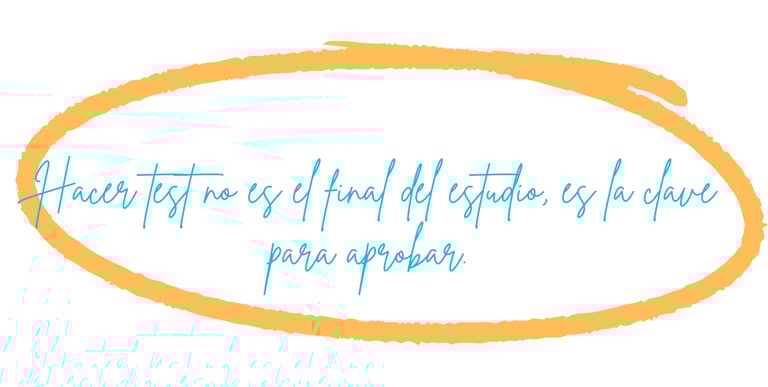 Hacer test no es el final del estudio, es la clave
para aprobar.